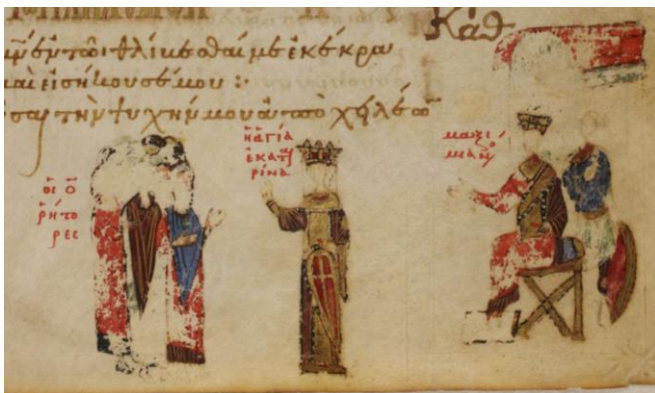 Καθ
ἐν τῶι θλίβεσθαί με ἐκέκρα
καὶ εἰσήκουσέ μου :·
σαι τὴν ψυχήν μου ἀπὸ χειλέω
οἱ ὁ
ρήτο
ρες
ἡ ἁγία
ἐκατε
ρίνα
μαξι
μιαν ο